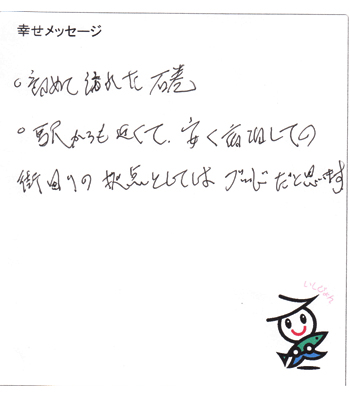 幸せメッセージ
○初めて訪れた石巻
○駅からも近くて、安く宿泊しての
街回りの拠点としては グッドだと思います
いしぴょん